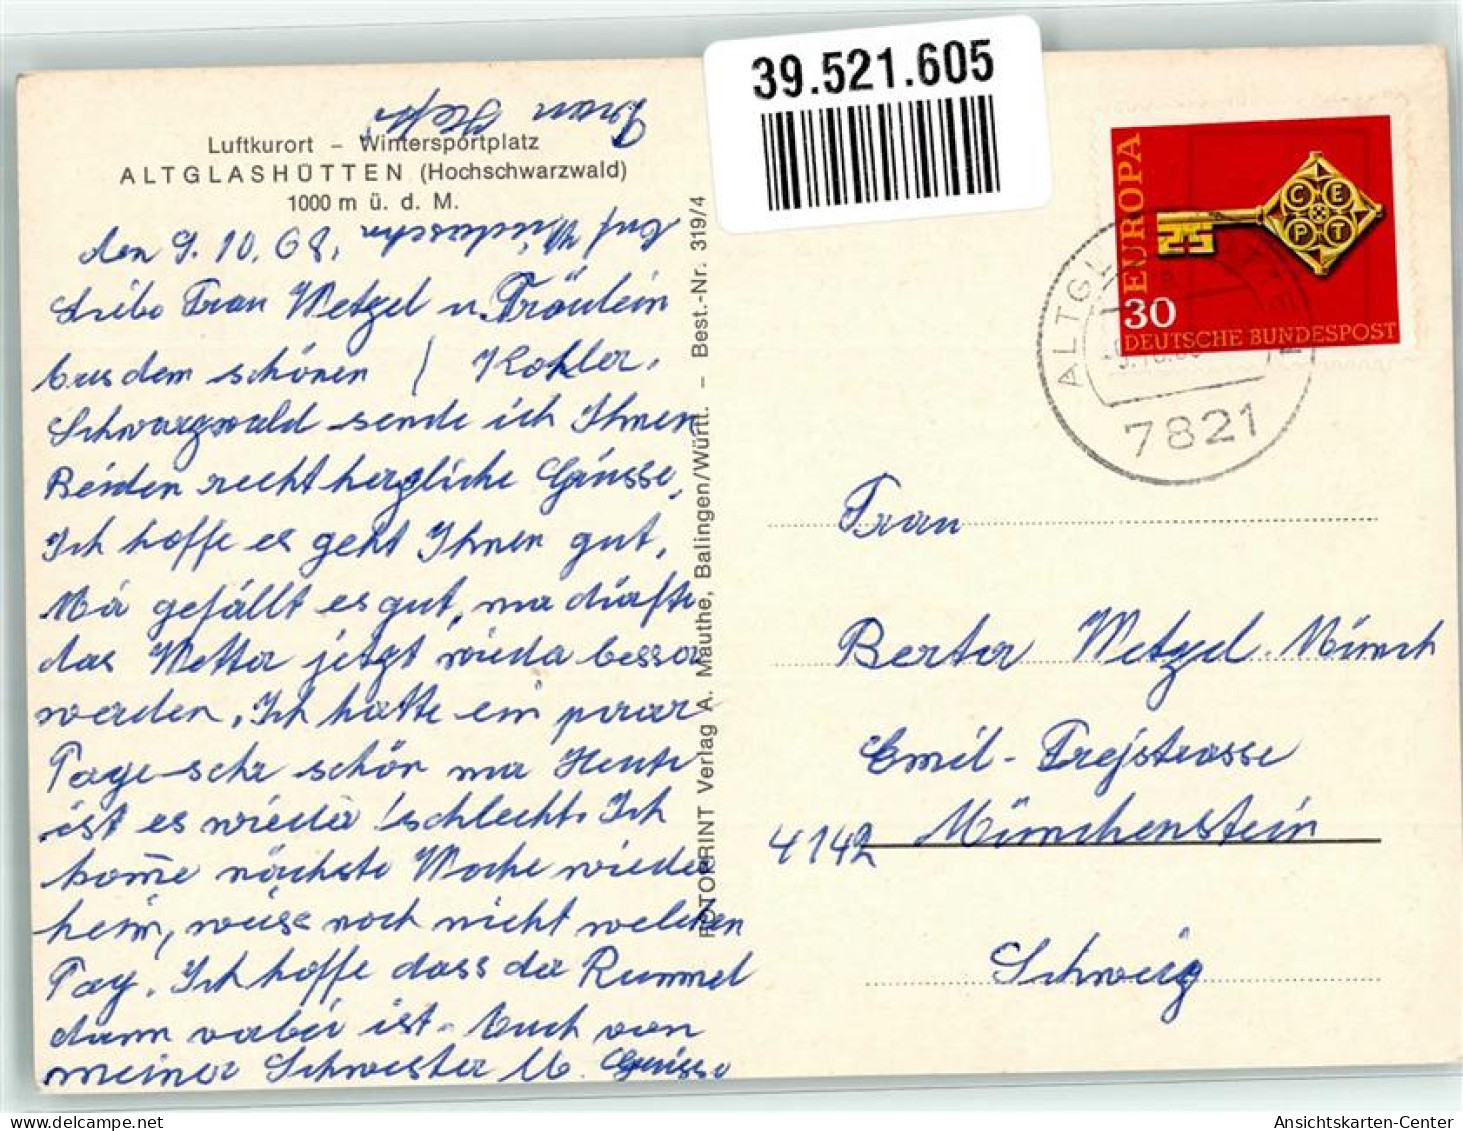 39.521.605
Luftkurort – Wintersportplatz
ALTGLASHÜTTEN (Hochschwarzwald)
1000 m ü. d. M.
den 9. 10. 68.
Liebe Frau Wetzel u. Fräulein
Aus dem schönen / Kohler.
Schwarzwald sende ich Ihnen
Beiden recht herzliche Grüsse.
Ich hoffe es geht Ihnen gut.
Mir gefällt es gut, nur dürfte
das Wetter jetzt wieder besser
werden. Ich hatte ein paar
Tage sehr schön nur Heute
ist es wieder schlecht. Ich
kom̅e nächste Woche wieder
heim, weiss noch nicht welchen
Tag. Ich hoffe dass der Rummel
dann vorbei ist. Auch von
meiner Schwester lb. Grüsse
Auf Wiedersehn
Frau
ROTOPRINT Verlag A. Mauthe, Balingen/Württ. – Best.-Nr. 319/4
EUROPA
CEPT
30
DEUTSCHE BUNDESPOST
7821
Frau
Berter Wetzel-Münch
Emil-Frejstrasse
4142 Münchenstein
Schweiz
Ansichtskarten-Center